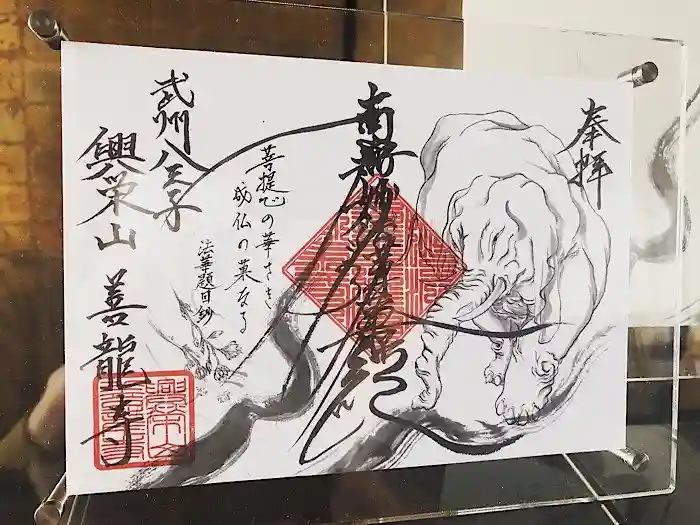 奉拝
南無妙法蓮華経
菩提心の華さき
成仏の菓なる
法華題目鈔
武州八王子
興栄山
善龍寺